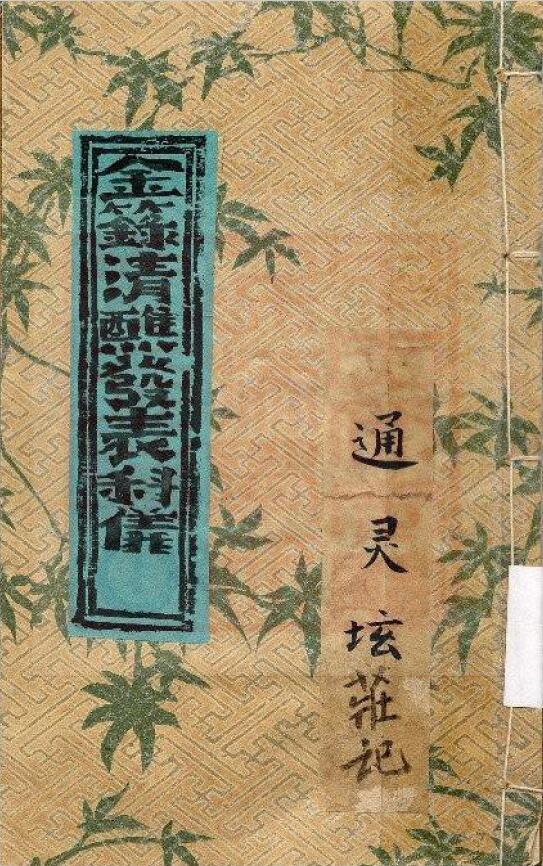 通灵坛莊記
大金籙清醮發表科儀